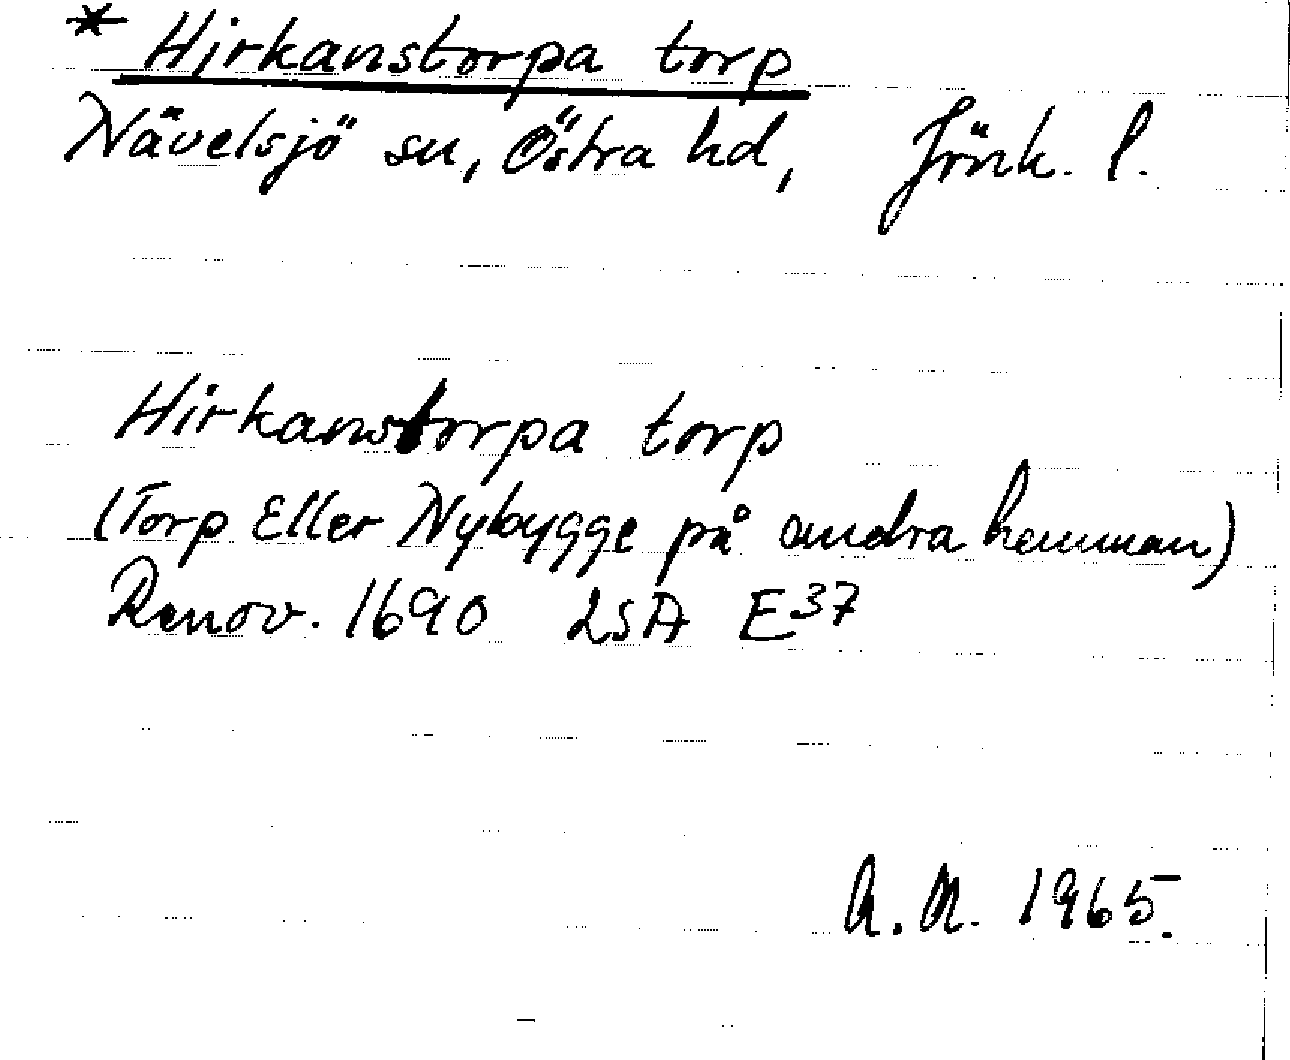 * Hirkanstorpa torp
Nävelsjö sn, Östra hd, Jönk. l.
Hirkanstorpa torp
(Torp Eller Nybygge på andra hemman)
Renov. 1690 LSA E37
A.N. 1965.